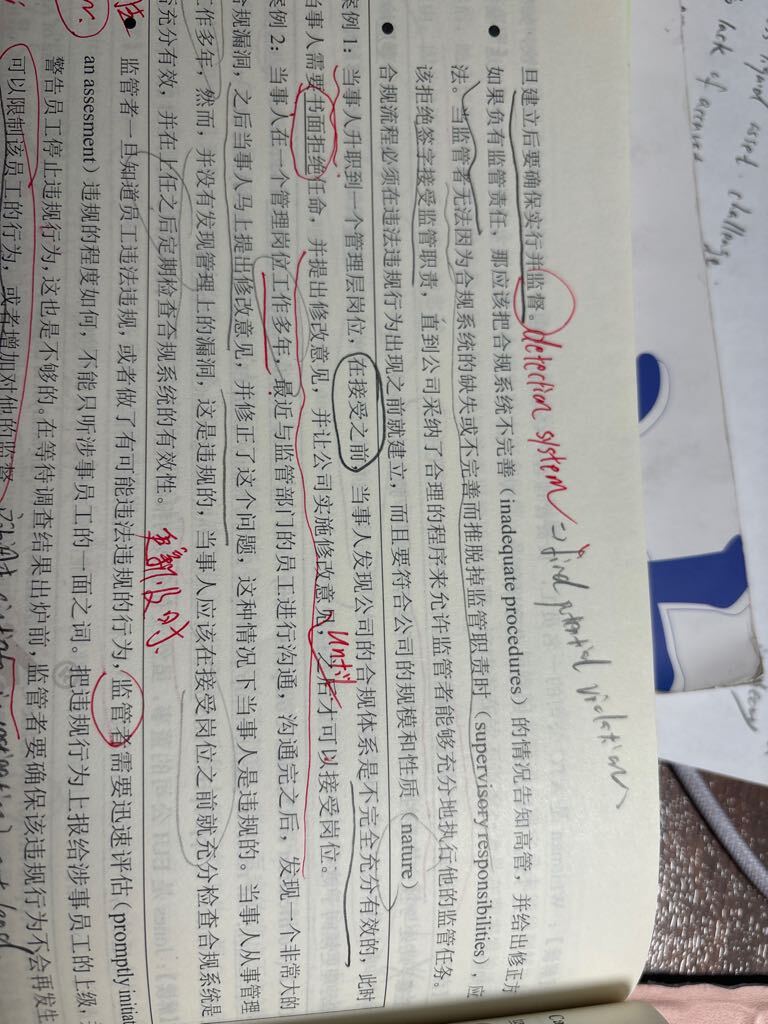 旦建立后要确保实行并监督。detection system => find potential violation
如果负有监管责任，那应该把合规系统不完善（inadequate procedures）的情况告知高管，并给出修正方
法。当监管者无法因为合规系统的缺失或不完善而推脱掉监管职责时（supervisory responsibilities），应
该拒绝签字接受监管职责，直到公司采纳了合理的程序来允许监管者能够充分地执行他的监管任务。
● 合规流程必须在违法违规行为出现之前就建立，而且要符合公司的规模和性质（nature）
案例 1：当事人升职到一个管理层岗位，在接受之前，当事人发现公司的合规体系是不完全充分有效的，此时
当事人需要书面拒绝任命，并提出修改意见，并让公司实施修改意见，之后才可以接受岗位。
until
案例 2：当事人在一个管理岗位工作多年，最近与监管部门的员工进行沟通，沟通完之后，发现一个非常大的
合规漏洞，之后当事人马上提出修改意见，并修正了这个问题，这种情况下当事人是违规的。当事人从事管理
工作多年，然而，并没有发现管理上的漏洞，这是违规的，当事人应该在接受岗位之前就充分检查合规系统是
否充分有效，并在上任之后定期检查合规系统的有效性。
● 监管者一旦知道员工违法违规，或者做了有可能违法违规的行为，监管者需要迅速评估（promptly initiat
an assesment）违规的程度如何，不能只听涉事员工的一面之词。把违规行为上报给涉事员工的上级，
警告员工停止违规行为，这也是不够的。在等待调查结果出炉前，监管者要确保该违规行为不会再发生
可以限制该员工的行为，或者增加对他的监督
lack of
challenge